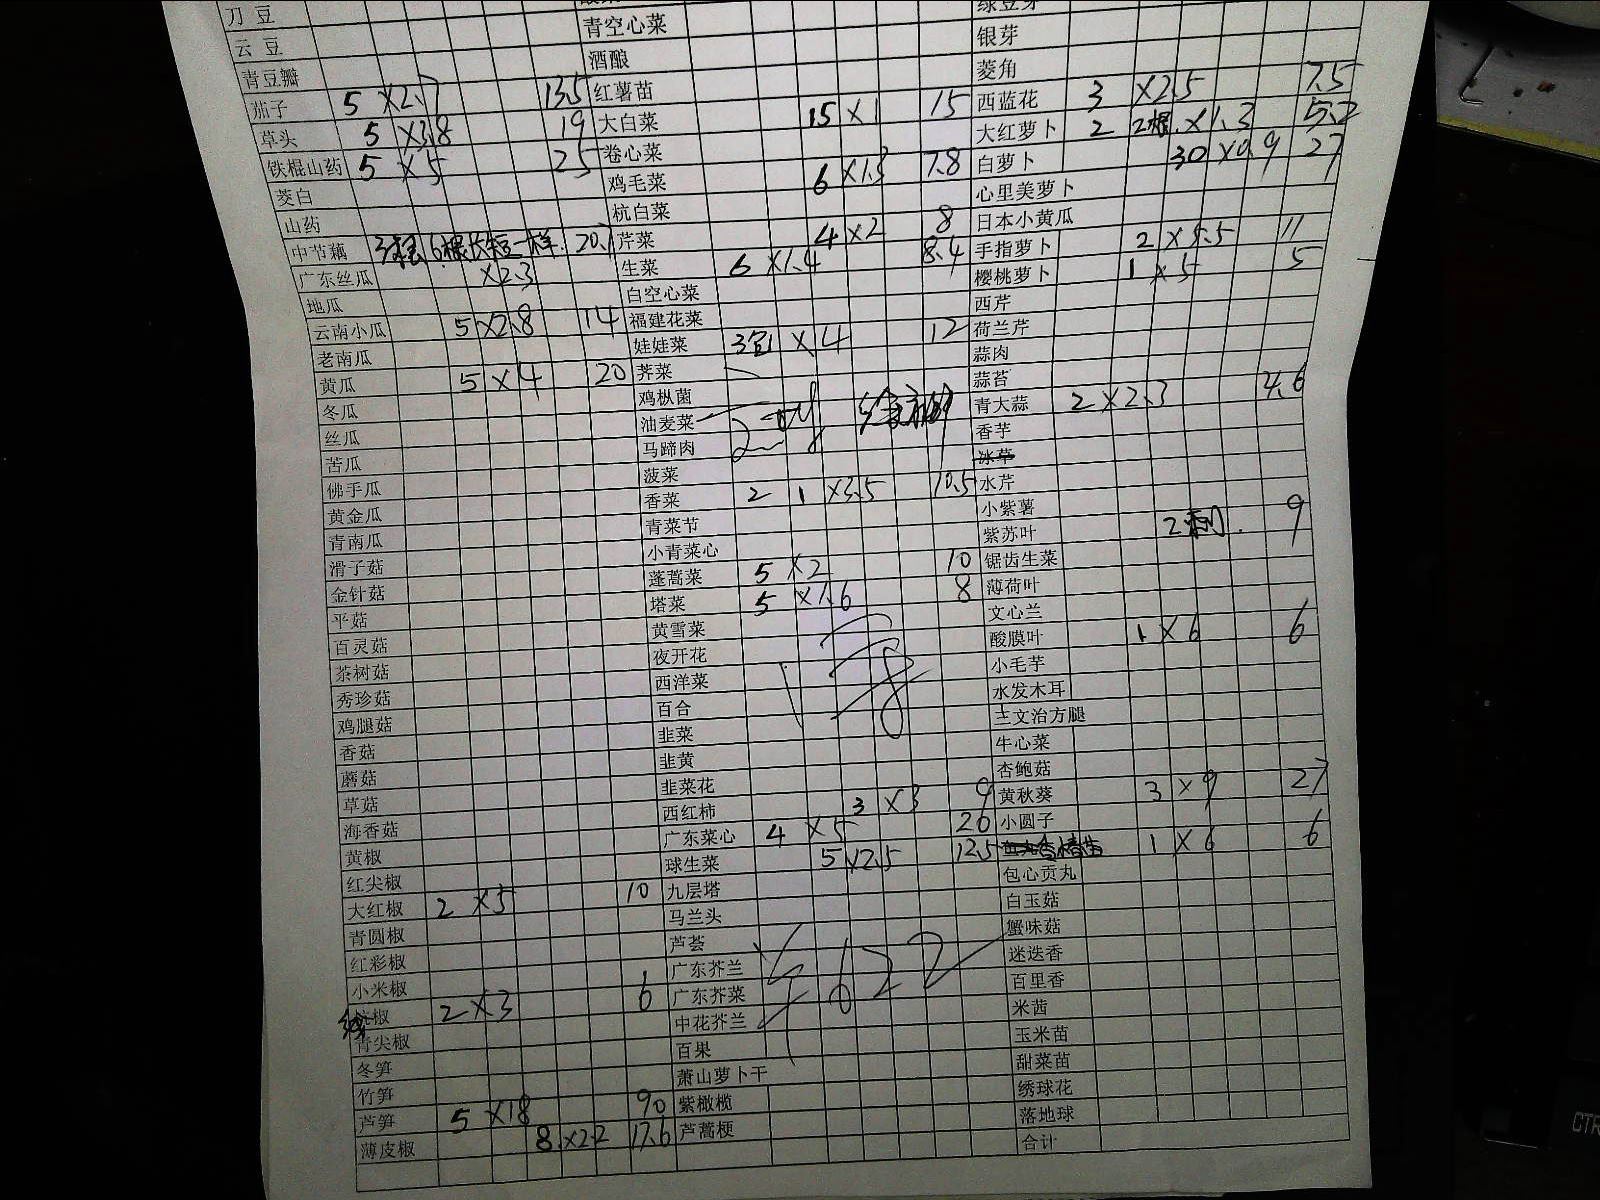 刀豆
云豆
青豆瓣
茄子 5 ×2.7 13.5
草头 5 ×3.8 19
铁棍山药 5 ×5 25
茭白
山药
中节藕 6根长短一样. 20.7
广东丝瓜 ×2.3
地瓜
云南小瓜 5 ×2.8 14
老南瓜
黄瓜 5 ×4 20
冬瓜
丝瓜
苦瓜
佛手瓜
黄金瓜
青南瓜
滑子菇
金针菇
平菇
百灵菇
茶树菇
秀珍菇
鸡腿菇
香菇
蘑菇
草菇
海香菇
黄椒
红尖椒
大红椒 2 ×5 10
青圆椒
红彩椒
小米椒
线椒 2 ×3 6
青尖椒
冬笋
竹笋
芦笋 5 ×18 90
薄皮椒 8 ×2.2 17.6
青空心菜
酒酿
红薯苗
大白菜 15 ×1 15
卷心菜
鸡毛菜 6 ×1.3 7.8
杭白菜
芹菜 4 ×2 8
生菜 6 ×1.4 8.4
白空心菜
福建花菜
娃娃菜 3包 ×4 12
荠菜
鸡枞菌
油麦菜
马蹄肉
菠菜
香菜 2 1 ×3.5 10.5
青菜节
小青菜心
蓬蒿菜 5 ×2 10
塔菜 5 ×1.6 8
黄雪菜
夜开花
西洋菜
百合
韭菜
韭黄
韭菜花
西红柿 3 ×3 9
广东菜心 4 ×5 20
球生菜 5 ×2.5 12.5
九层塔
马兰头
芦荟
广东芥兰
广东芥菜
中花芥兰
百果
萧山萝卜干
紫橄榄
芦蒿梗
绿豆芽
银芽
菱角
西蓝花 3 ×2.5 7.5
大红萝卜 2 2根. ×1.3 5.2
白萝卜 30 ×0.9 27
心里美萝卜
日本小黄瓜
手指萝卜 2 ×5.5 11
樱桃萝卜 1 ×5 5
西芹
荷兰芹
蒜肉
蒜苔
青大蒜 2 ×2.3 4.6
香芋
冰草
水芹
小紫薯
紫苏叶 9
锯齿生菜
薄荷叶
文心兰
酸膜叶 1 ×6 6
小毛芋
水发木耳
三文治方腿
牛心菜
杏鲍菇
黄秋葵 3 ×9 27
小圆子
香椿苗 1 ×6 6
包心贡丸
白玉菇
蟹味菇
迷迭香
百里香
米茜
玉米苗
甜菜苗
绣球花
落地球
合计